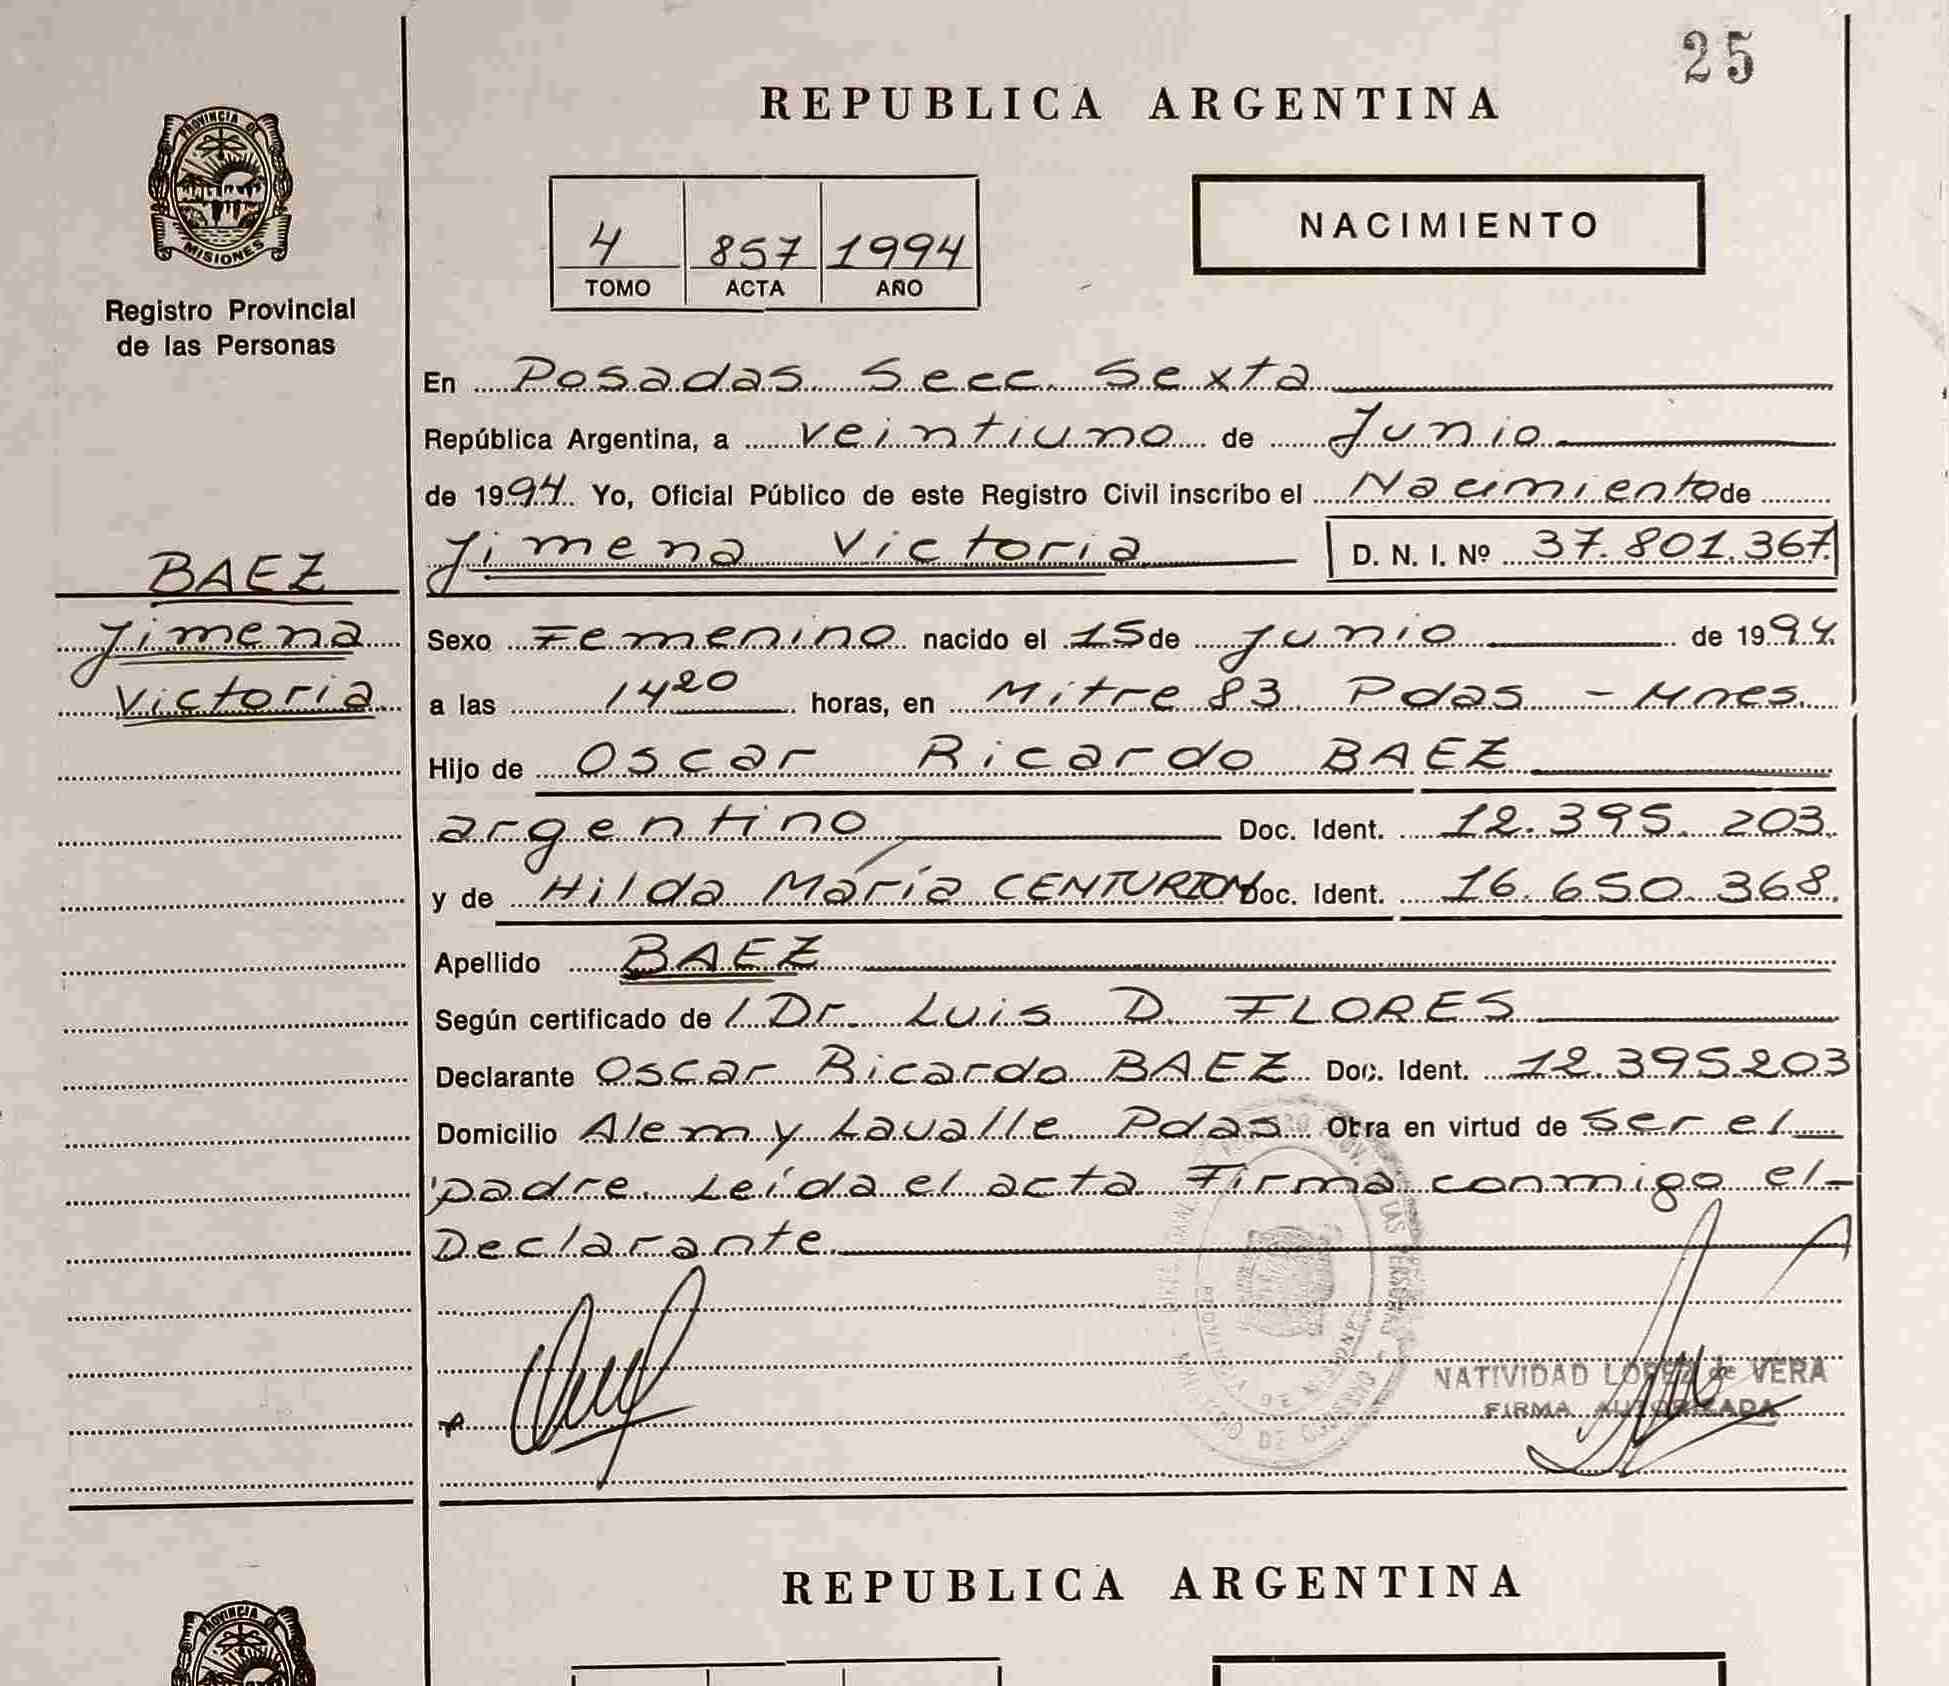 25
REPUBLICA ARGENTINA
PROVINCIA DE
MISIONES
Registro Provincial
de las Personas
4 857 1994
TOMO ACTA AÑO
NACIMIENTO
En Posadas Secc. Sexta
República Argentina, a veintiuno de Junio
de 1994. Yo, Oficial Público de este Registro Civil inscribo el Nacimiento de
BAEZ
Jimena
Victoria
Jimena Victoria D. N. I. Nº 37.801.367.
Sexo Femenino nacido el 15 de Junio de 1994.
a las 14 20 horas, en Mitre 83 Pdas - Mnes.
Hijo de Oscar Ricardo BAEZ
argentino Doc. Ident. 12.395.203.
y de Hilda María CENTURION Doc. Ident. 16.650.368.
Apellido BAEZ
Según certificado de / Dr. Luis D. FLORES
Declarante Oscar Ricardo BAEZ Doc. Ident. 12.395.203
Domicilio Alem y Lavalle Pdas Obra en virtud de ser el
padre. Leída el acta Firma conmigo el
Declarante.
DE LAS PERSONAS
PROVINCIA DE
NATIVIDAD LOPEZ de VERA
FIRMA AUTORIZADA
REPUBLICA ARGENTINA
PROVINCIA DE